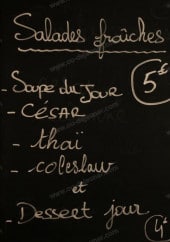 Salades fraîches
- Soupe du Jour 5€
- CÉSAR
- thaï
- coleslaw
et
- Dessert jour 4€